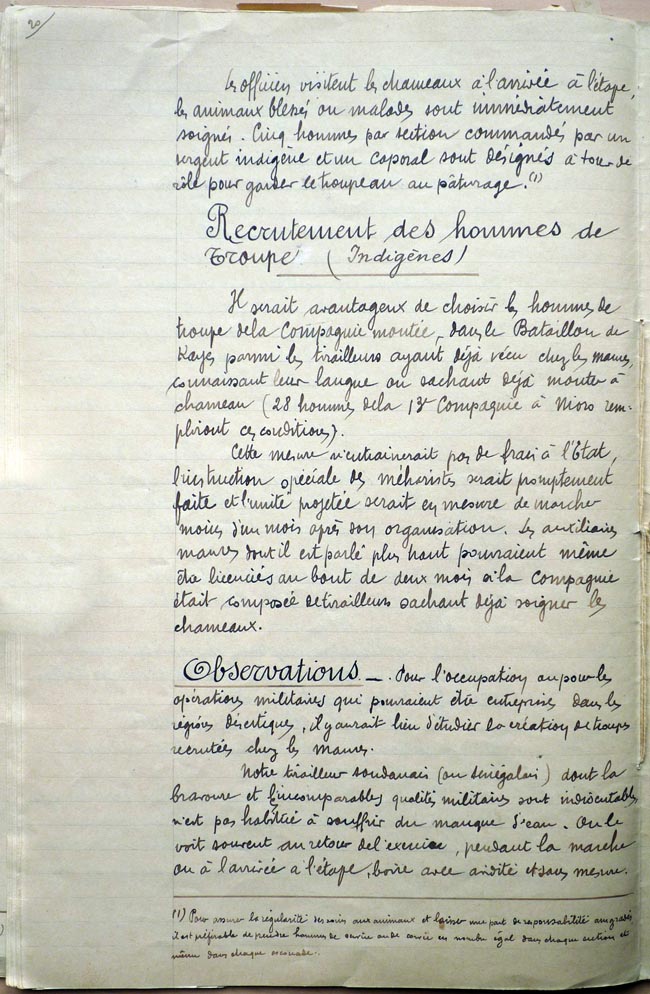 20
Les officiers visitent les chameaux à l'arrivée à l'étape,
les animaux blessés ou malades sont immédiatement
soignés. Cinq hommes par section commandés par un
sergent indigène et un caporal sont désignés à tour de
rôle pour garder le troupeau au pâturage. (1)
Recrutement des hommes de
Troupe (Indigènes)
Il serait avantageux de choisir les hommes de
troupe de la Compagnie montée, dans le Bataillon de
Kayes parmi les tirailleurs ayant déjà vécu chez les maures,
connaissant leur langue ou sachant déjà monter à
chameau (28 hommes de la 13e Compagnie à Nioro rem-
pliront ces conditions).
Cette mesure n'entrainerait pas de frais à l'Etat,
l'instruction spéciale des méharistes serait promptement
faite et l'unité projetée serait en mesure de marcher
moins d'un mois après son organisation. Les auxiliaires
maures dont il est parlé plus haut pourraient même
être licenciés au bout de deux mois si la Compagnie
était composée de tirailleurs sachant déjà soigner les
chameaux.
Observations _. Pour l'occupation ou pour les
opérations militaires qui pourraient être entreprises dans les
régions désertiques, il y aurait lieu d'étudier la création de troupes
recrutés chez les maures.
Notre tirailleur soudanais (ou Sénégalais) dont la
bravoure et l'incomparables qualités militaires sont indiscutables
n'est pas habitué à souffrir du manque d'eau. On le
voit souvent au retour de l'exercice, pendant la marche
ou à l'arrivée à l'étape, boire avec avidité et sans mesure.
(1) Pour assurer la régularité des soins aux animaux et laisser une part de responsabilité aux gradés
il est préférable de prendre hommes de service ou de corvée en nombre égal dans chaque section et
même dans chaque escouade.